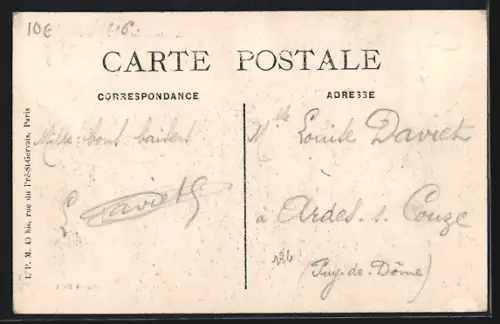 10€
CARTE POSTALE
CORRESPONDANCE
ADRESSE
Mille bons baisers
L. Daviet
Mlle Louise Daviet
à Ardes. s. Couze
(Puy-de-Dôme)
I. P. M. 45 bis, rue du Pré-St-Gervais, Paris